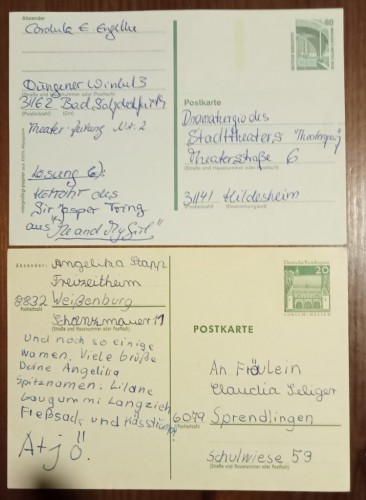 Absender
Cordula E. Engelke
Düngener Winkel 3
(Straße und Hausnummer oder Postfach)
31162 Bad Salzdetfurth
(Postleitzahl) (Ort)
Theater-Zeitung Nr. 2
Lösung 6):
des
Sir Jasper Tring
aus "Me and My Girl"
60
Postkarte
Dramaturgie des
Stadttheaters "Theaterzeitung"
Theaterstraße 6
(Straße und Hausnummer oder Postfach)
31141 Hildesheim
(Postleitzahl) (Bestimmungsort)
Absender:
Angelika Stapf
Freizeitheim
8832 Weißenburg
Postleitzahl
Schanzmauer 11
(Straße und Hausnummer oder Postfach)
Und noch so einige
Namen. Viele Grüße
Deine Angelika
Spitznamen: Lilane
baugummi Langzieh
Freßsack, und
A+jö!
Deutsche Bundespost
20
LORSCH · HESSEN
POSTKARTE
An Fräulein
Claudia Seliger
6079 Sprendlingen
(Postleitzahl)
Schulwiese 59
(Straße und Hausnummer oder Postfach)